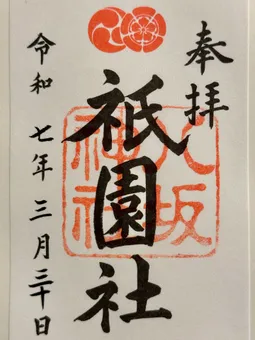 奉拝
祇園社
八坂
神社
令和七年三月三十日